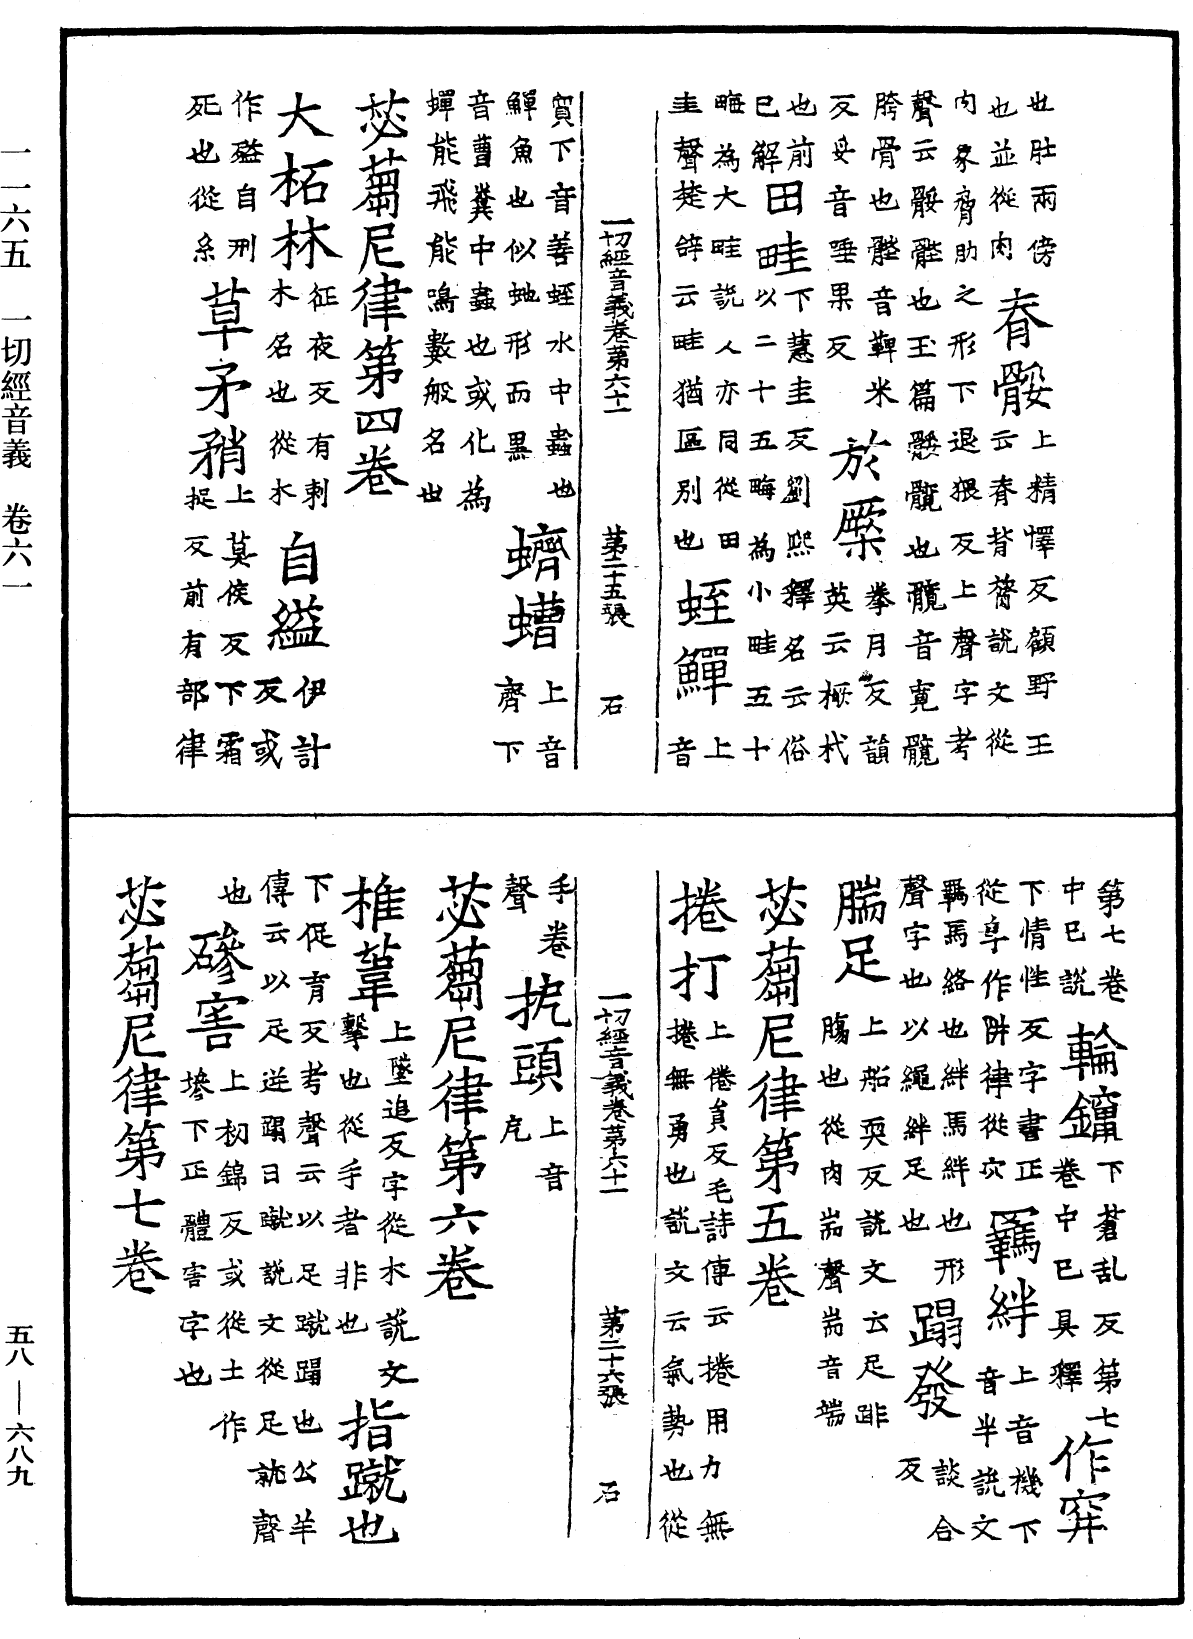 也肚兩傍脊骽上精懌反顧野王
也並從肉脊骽云脊背膂說文從
肉象脅肋之形下退猥反上聲字考
聲云骽髀也玉篇髁髖也髖音寬髖
胯骨也髀音鞞米於橜拳月反韻
反毋音唾果反於橜英云橛杙
也前田畦下蕙圭反劉熙釋名云俗
已解田畦以二十五畮為小畦五十
畮為大畦說人亦同從田蛭鱓上
圭聲楚辭云畦猶區別也蛭鱓音
一切經音義卷第六十一 第二十五張 石
質下音善蛭水中蟲也蠐螬上音
鱓魚也似虵形而黑蠐螬齊下
音曹糞中蟲也或化為
蟬能飛能鳴數般名也
苾蒭尼律第四卷
大柘林征夜反有刺自縊伊計
大柘林木名也從木自縊反或
作𣨙自刑草矛矟上莫侯反下霜
死也從糸草矛矟捉反前有部律
第七卷輪鑹下蒼乱反第七作穽
中已說輪鑹卷中已具釋作穽
下情性反字書正羈絆上音機下
從阜作阱律從穴羈絆音半說文
羈馬絡也絆馬絆也形蹋發談合
聲字也以繩絆足也蹋發反
腨足上船耎反說文云足腓
腨足腸也從肉耑聲耑音端
苾蒭尼律第五卷
捲打上倦員反毛詩傳云捲用力無
捲打捲無勇也說文云氣勢也從
一切經音義卷第六十一 第二十六張 石
手卷抗頭上音
聲抗頭
苾蒭尼律第六卷
椎葦上墜追反字從木說文指蹴也
椎葦擊也從手者非也指蹴也
下促育反考聲云以足蹴蹋也公羊
傳云以足逆蹋曰蹴說文從足就聲
也磣害上初錦反或從土作
磣害墋下正體害字也
苾蒭尼律第七卷
一一六五 一切經音義 卷六一
五八—六八九